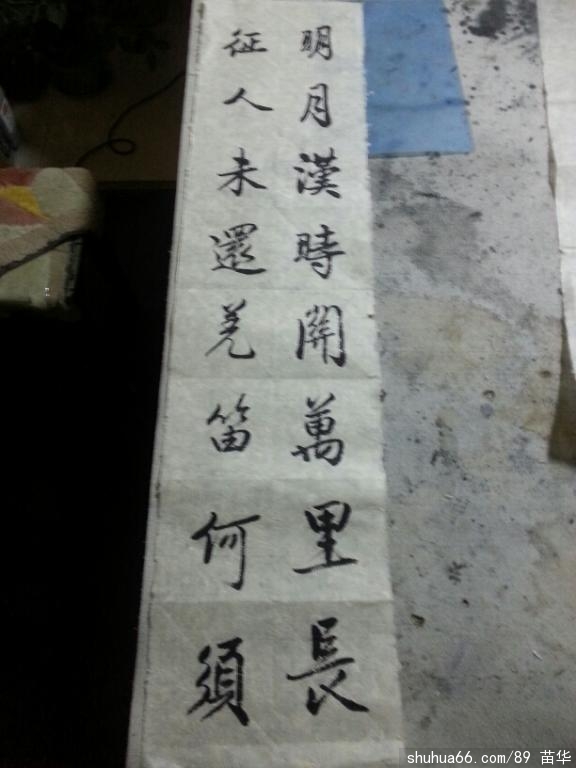 明月漢時關萬里長
征人未還羌笛何須
shuhua66.com/89 苗华